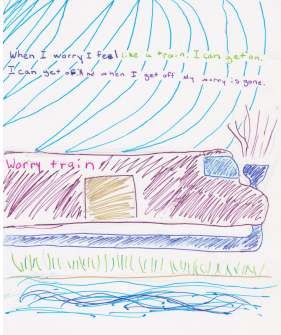 When I worry I feel like a train. I can get on.
I can get off. And when I get off My worry is gone.
Worry train